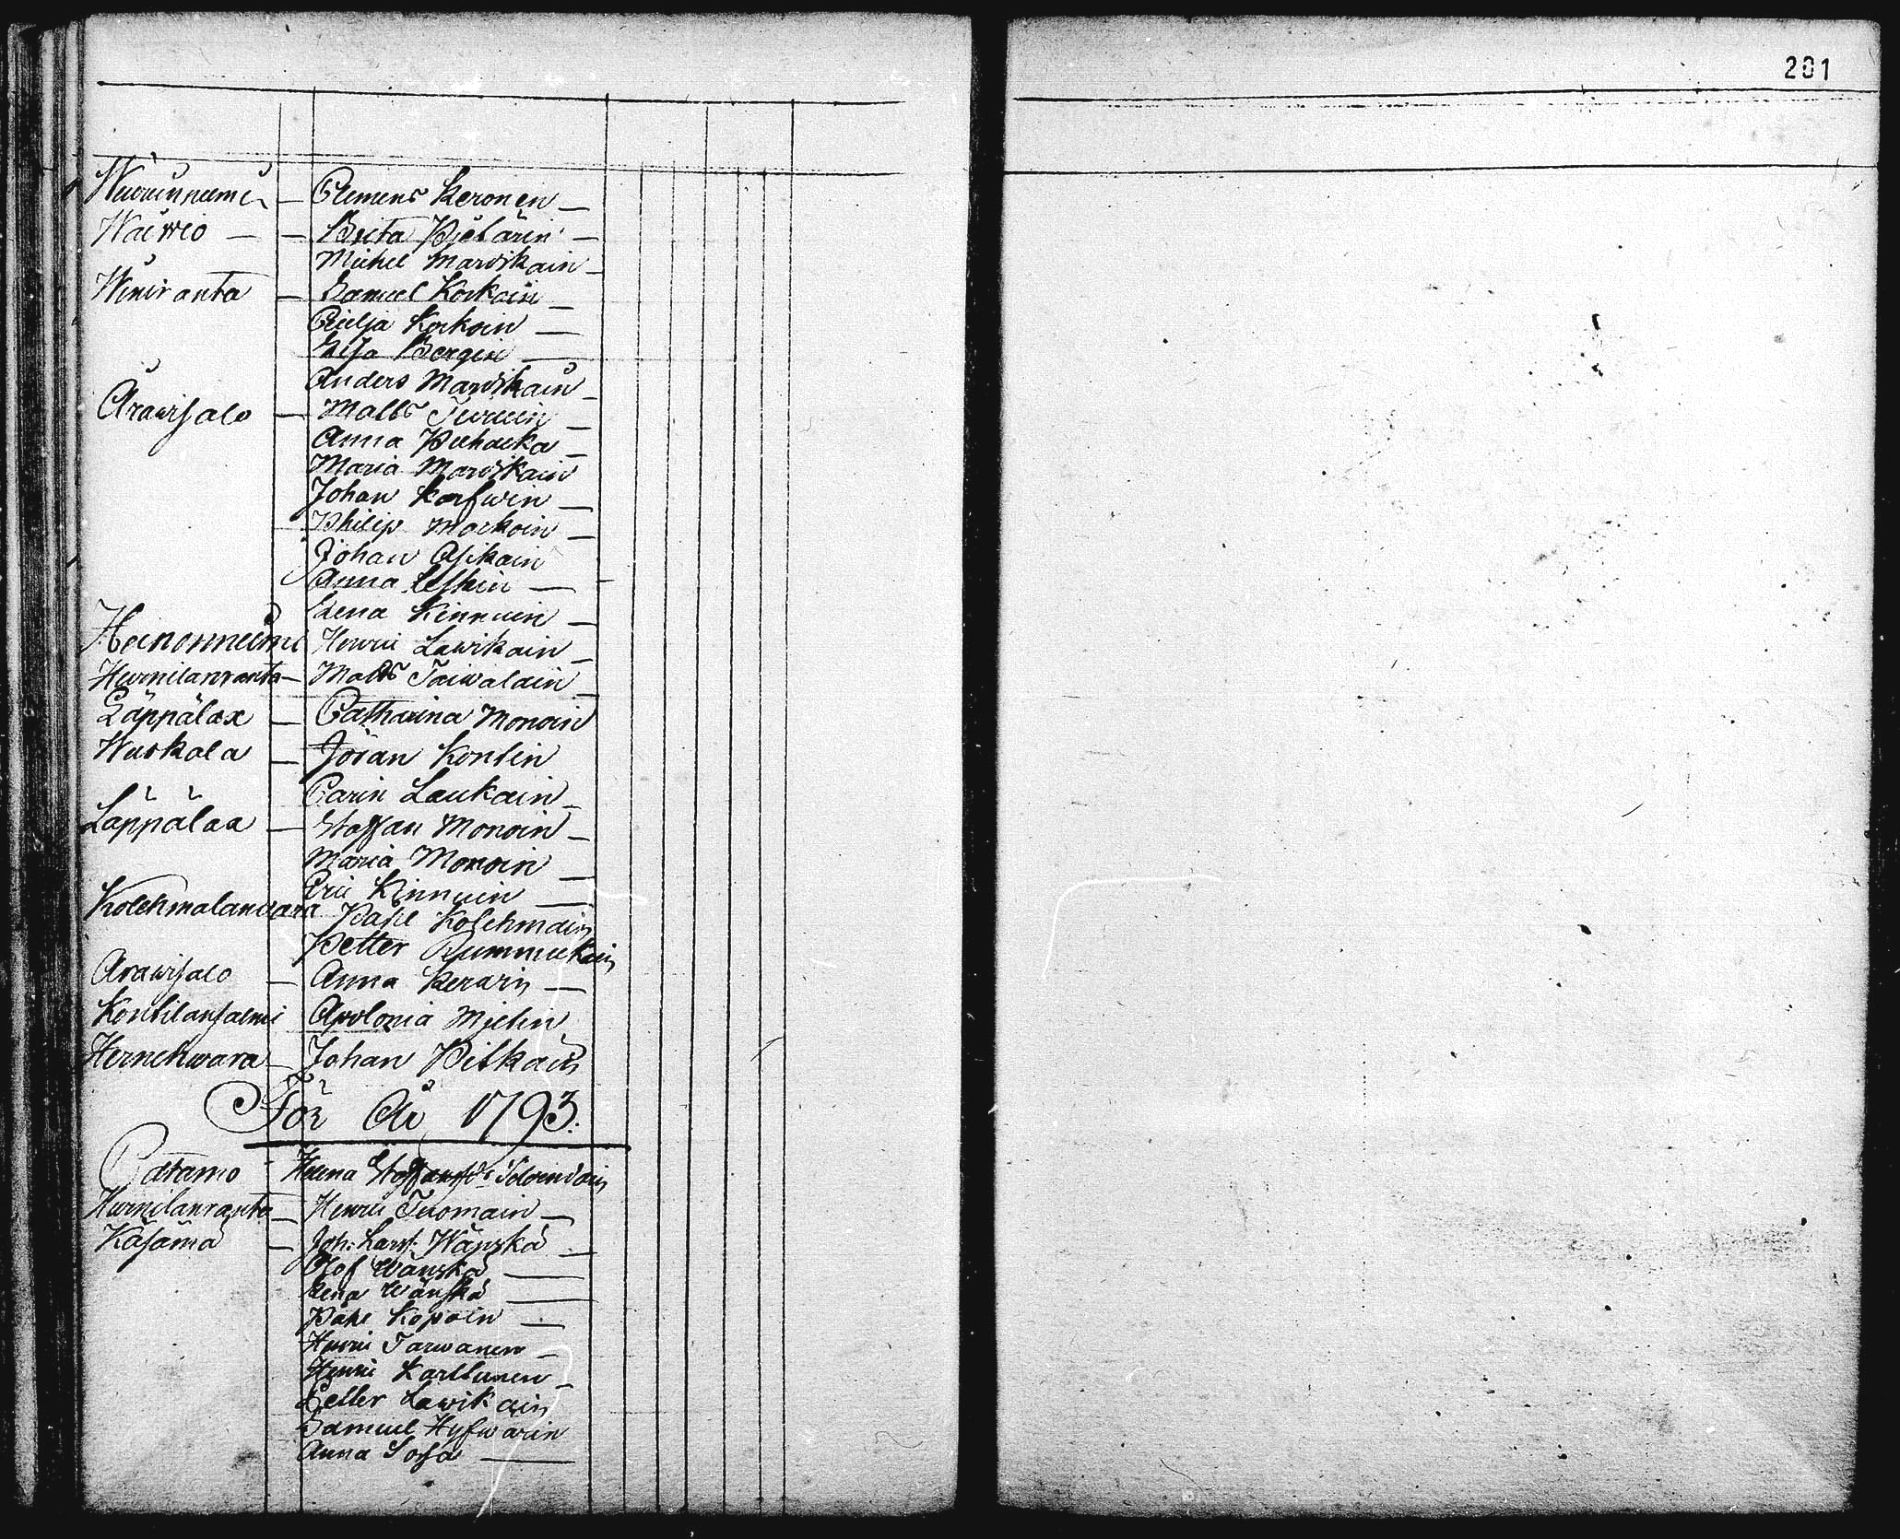 201
Wuoriniemi — Clemens Keronen —
Waiwio — — Brita Pietarin —
Michel Mardikain —
Winiranta — Samuel Korkain —
Cicilja Korkoin —
Lisa Bergin —
Anders Mardikain —
Arawisalo — Matts Turuin —
Anna Puhacka —
Maria Mardikain
Johan Karfwin —
Philip Markoin —
Johan Asikain
Anna Leskin —
Lena Kinnuin —
Heinoniemi Henric Lawikain —
Hurnilanranta — Matts Taiwalain —
Läppälax — Catharina Monoin
Waskala — Jöran Kontin
Carin Laukain —
Läppälax — Staffan Monoin —
Maria Monoin —
Eric Kinnuin —
Kolehmalanwara Påhl Kolehmain
Petter Rummukain
Arawisalo — Anna Kerarin —
Kontilansalmi Apolonia Mjelin
Hernehwara — Johan Pitkain
För År 1793.
Potamo Helena Staffansdr Toloindain
Hurnilanranta — Henric Tuomain —
Käsämä — Joh: Larss: Wänskä —
Olof Wänskä —
Lena Wänskä —
Påhl Kopoin —
Henric Tarwanen —
Henric Karttunen —
Petter Lawikain
Samuel Hyfwärin
Anna Sofia —